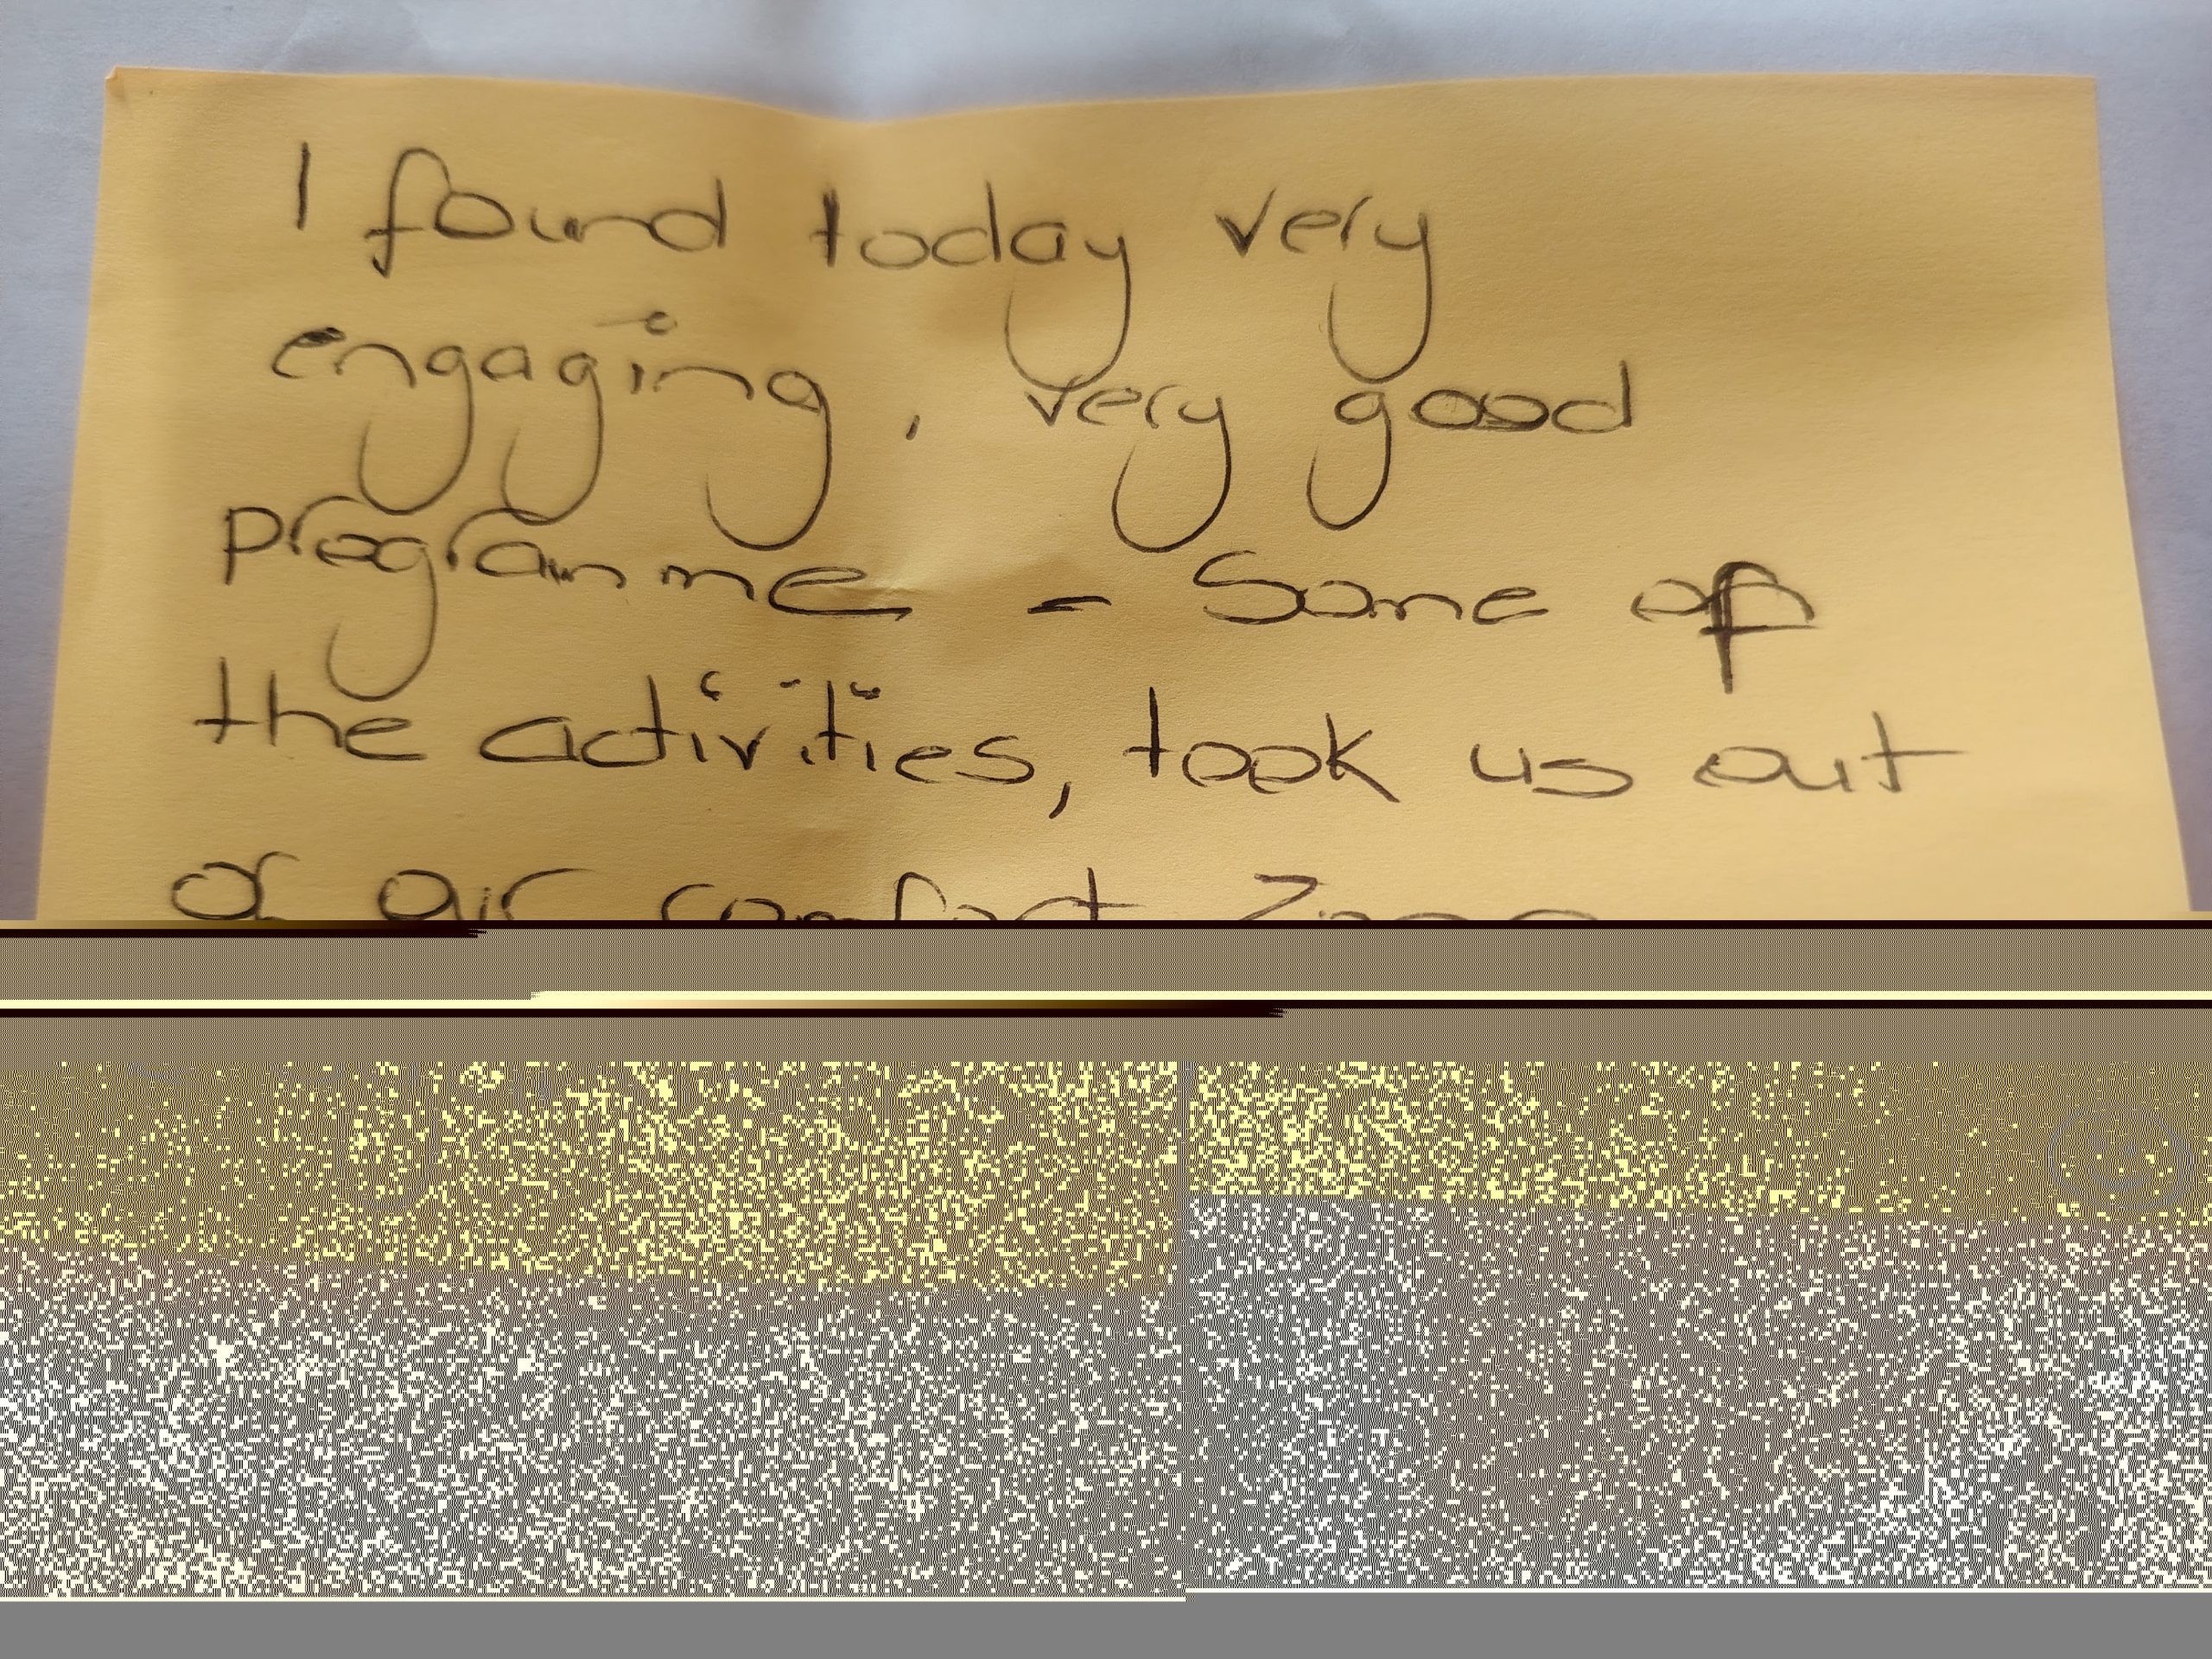 I found today very
engaging, very good
programme - Some of
the activities, took us out
of our comfort zone